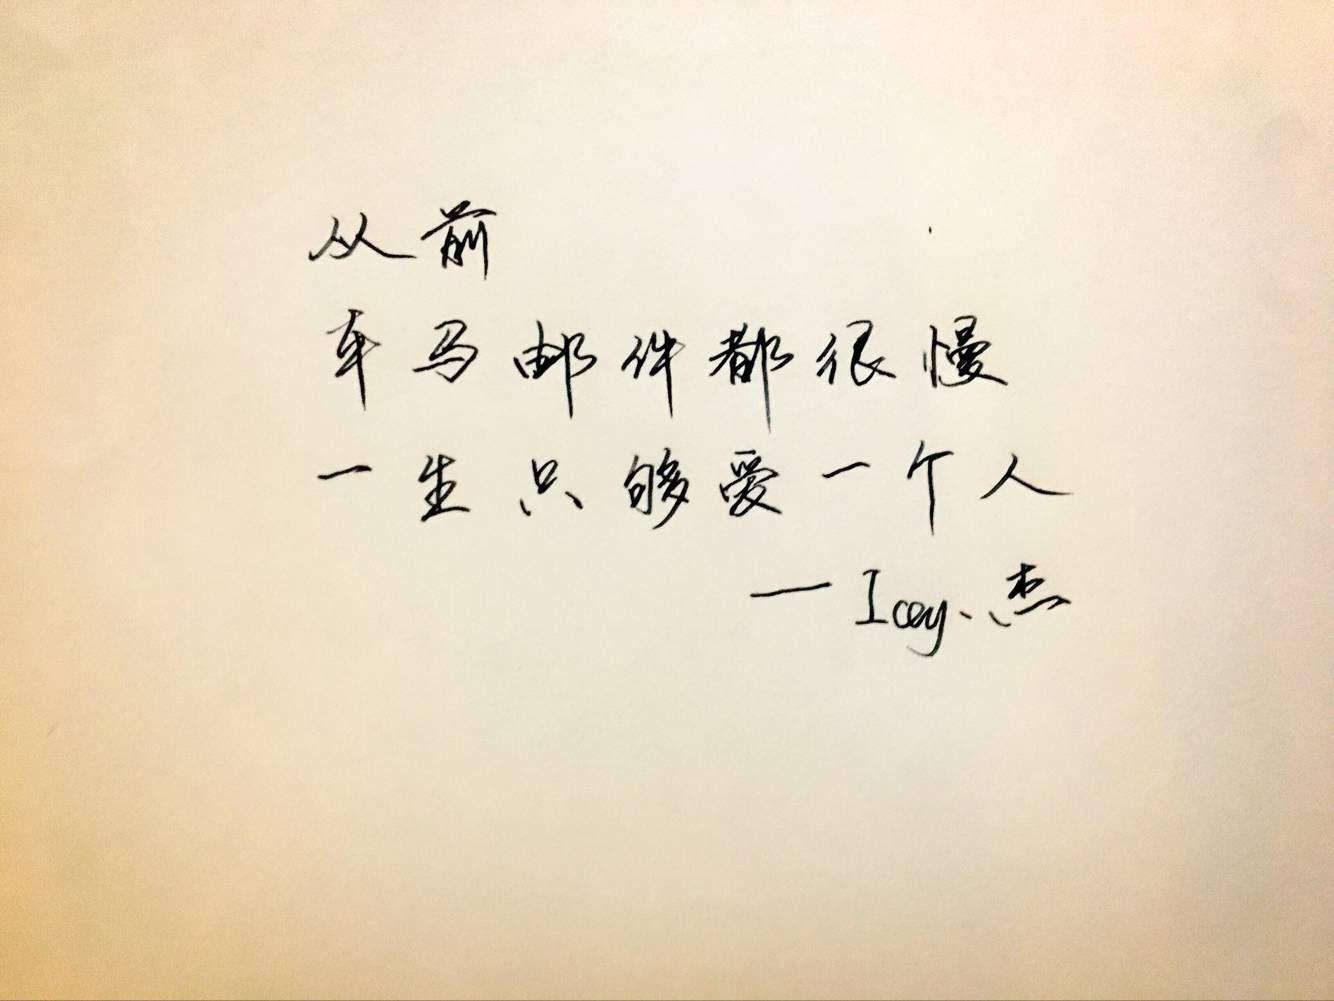 从前
车马邮件都很慢
一生只够爱一个人
— Icey、杰